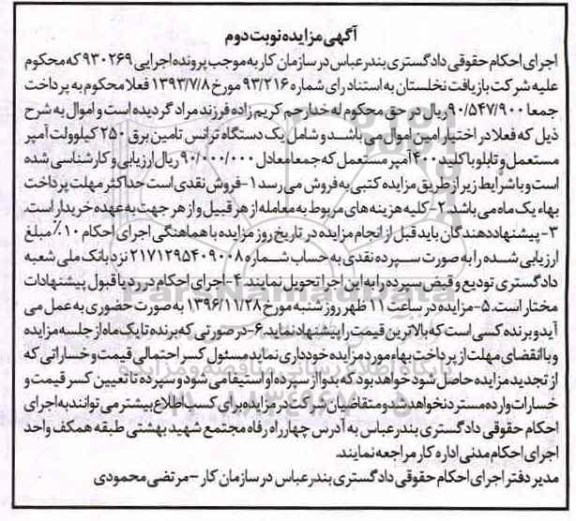 آگهی مزایده نوبت دوم
اجرای احکام حقوقی دادگستری بندرعباس در سازمان کار به موجب پرونده اجرایی ۹۳۰۲۶۹ که محکوم
علیه شرکت بازیافت نخلستان به استناد رای شماره ۹۳/۲۱۶ مورخ ۱۳۹۳/۷/۸ فعلا محکوم به پرداخت
جمعا ۹۰/۵۴۷/۹۰۰ ریال در حق محکوم له خدارحم کریم زاده فرزند مراد گردیده است و اموال به شرح
ذیل که فعلا در اختیار امین اموال می باشد و شامل یک دستگاه ترانس تامین برق ۲۵۰ کیلوولت آمپر
مستعمل و تابلو با کلید ۴۰۰ آمپر مستعمل که جمعا معادل ۹۰/۰۰۰/۰۰۰ ریال ارزیابی و کارشناسی شده
است و با شرایط زیر از طریق مزایده کتبی به فروش می رسد ۱-فروش نقدی است حداکثر مهلت پرداخت
بهاء یک ماه می باشد. ۲-کلیه هزینه های مربوط به معامله از هر قبیل و از هر جهت به عهده خریدار است.
۳-پیشنهاد دهندگان باید قبل از انجام مزایده در تاریخ روز مزایده با هماهنگی اجرای احکام ۱۰٪ مبلغ
ارزیابی شده را به صورت سپرده نقدی به حساب شماره ۲۱۷۱۲۹۵۴۰۹۰۰۸ نزد بانک ملی شعبه
دادگستری تودیع و قبض سپرده را به این اجرا تحویل نمایند. ۴-اجرای احکام در رد یا قبول پیشنهادات
مختار است. ۵-مزایده در ساعت ۱۱ ظهر روز شنبه مورخ ۱۳۹۶/۱۱/۲۸ به صورت حضوری به عمل می
آید و برنده کسی است که بالاترین قیمت را پیشنهاد نماید. ۶-در صورتی که برنده تا یک ماه از جلسه مزایده
و با انقضای مهلت از پرداخت بهاء مورد مزایده خودداری نماید مسئول کسر احتمالی قیمت و خساراتی که
از تجدید مزایده حاصل شود خواهد بود که بدوا از سپرده او استیفا می شود و سپرده تا تعیین کسر قیمت و
خسارات وارده مسترد نخواهد شد و متقاضیان شرکت در مزایده برای کسب اطلاع بیشتر می توانند به اجرای
احکام حقوقی دادگستری بندرعباس به آدرس چهارراه رفاه مجتمع شهید بهشتی طبقه همکف واحد
اجرای احکام مدنی اداره کار مراجعه نمایند.
مدیر دفتر اجرای احکام حقوقی دادگستری بندرعباس در سازمان کار -مرتضی محمودی